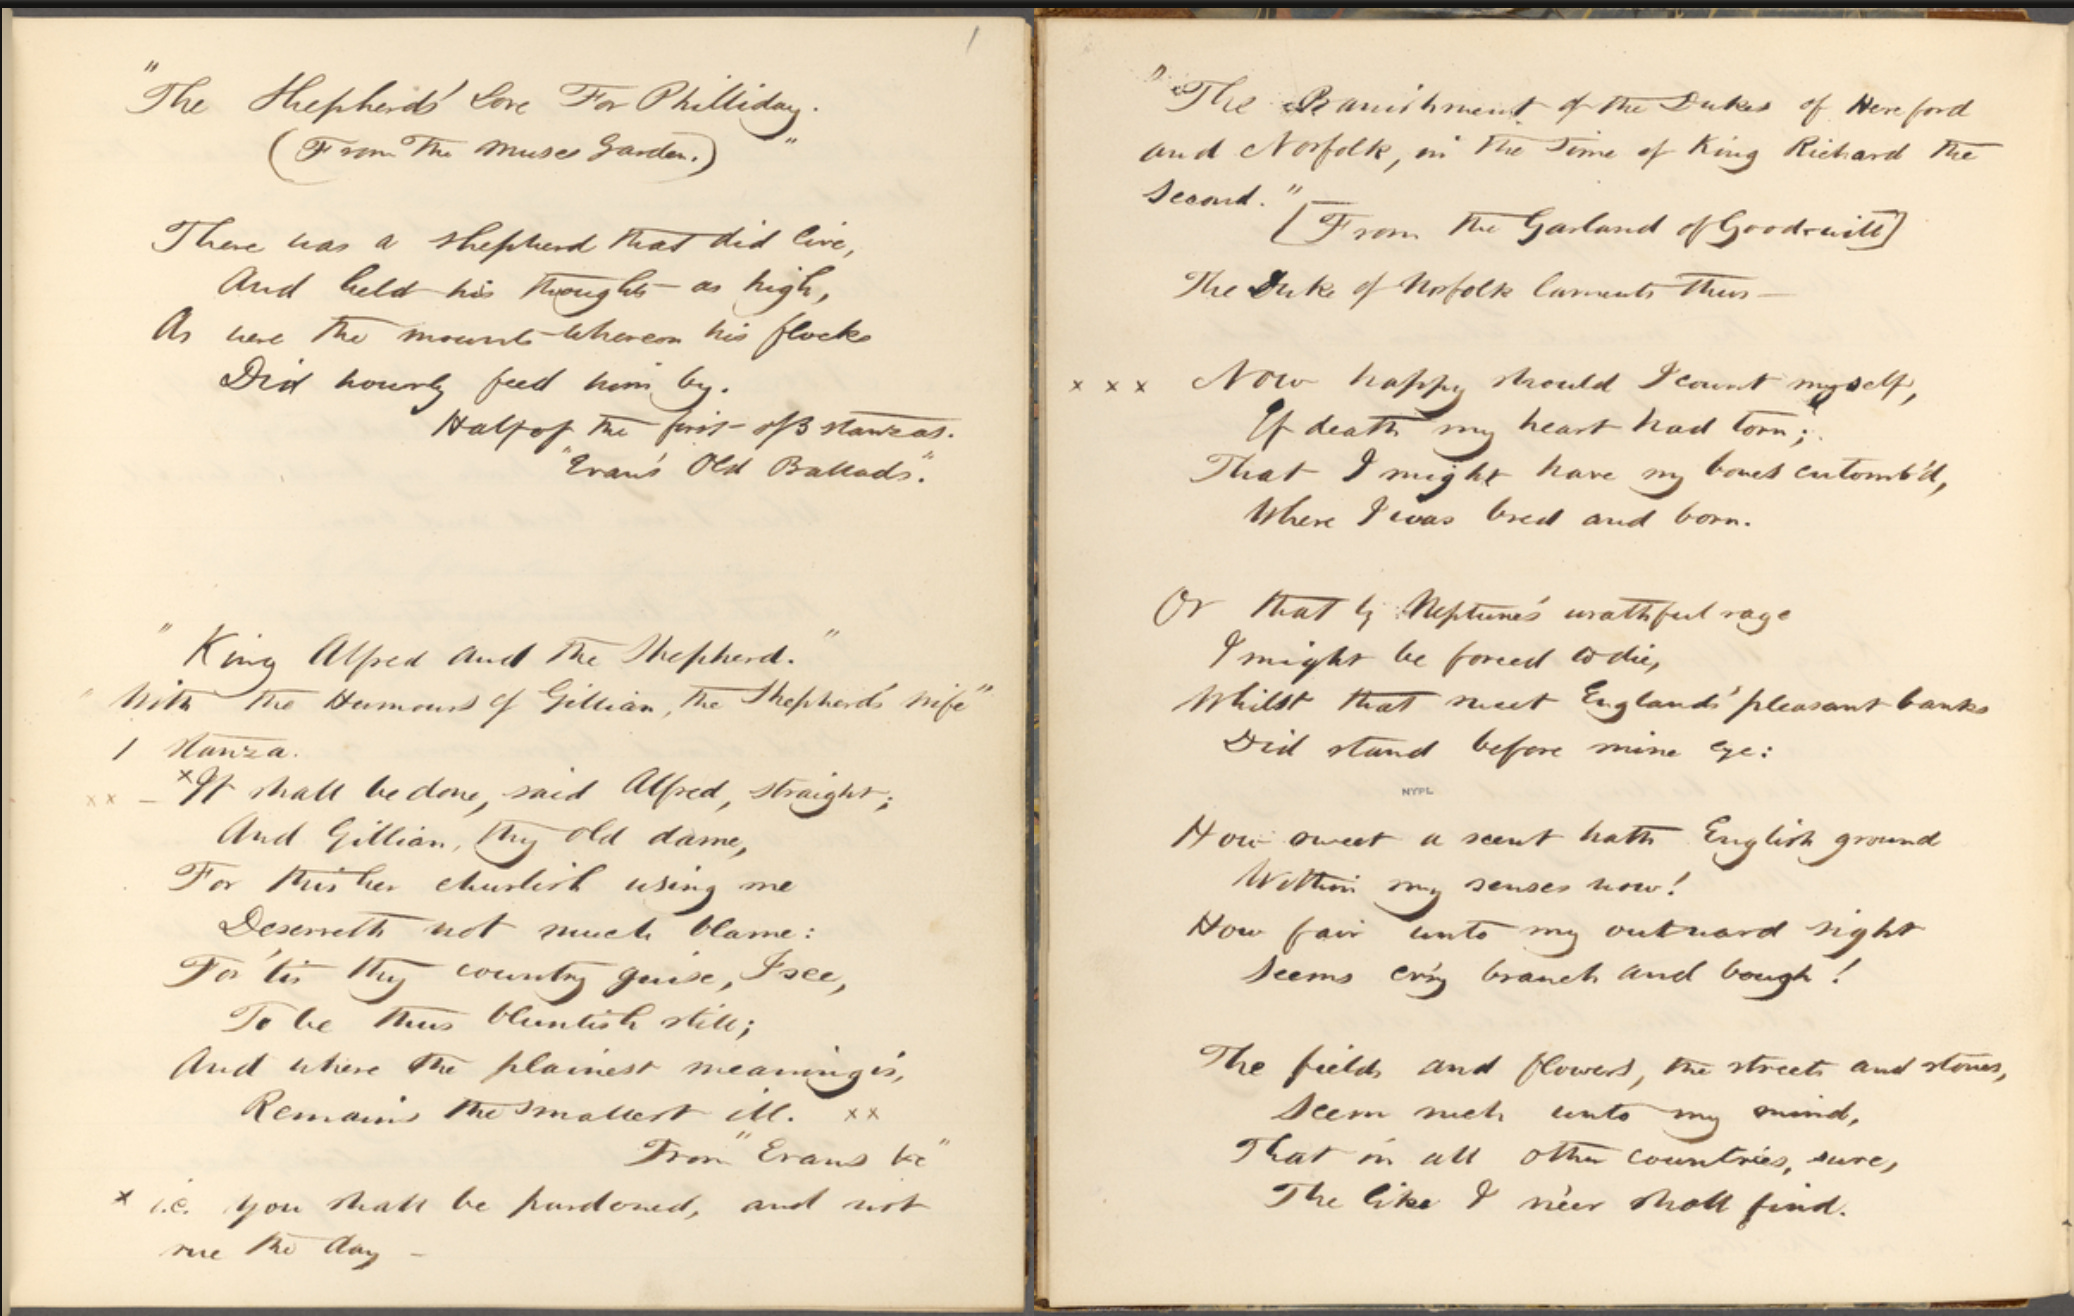 1
"The Shepherds' Love For Philliday.
(From The Muses Garden.)"
There was a shepherd that did live,
And held his thoughts as high,
As were the mounts whereon his flocks
Did hourly feed him by.
Half of the first of 3 stanzas.
"Evan's Old Ballads."
"King Alfred and the Shepherd."
"With the Humours of Gillian, the Shepherds' wife"
1 stanza.
x x – xIt shall be done, said Alfred, straight;
And Gillian, thy old dame,
For this her churlish using me
Deserveth not much blame:
For 'tis thy country guise, I see,
To be thus bluntish still;
And where the plainest meaning is,
Remains the smallest ill. x x
From "Evans &c"
x i.e. you shall be pardoned, and not
rue the day –
"The Banishment of the Dukes of Hereford
and Norfolk, in the Time of King Richard the
Second."
[From the Garland of Good-will]
The Duke of Norfolk laments thus—
x x x Now happy should I count myself,
If death my heart had torn;
That I might have my bones entomb'd,
Where I was bred and born.
Or that by Neptune's wrathful rage
I might be forced to die,
Whilst that sweet Englands' pleasant banks
Did stand before mine eye:
NYPL
How sweet a scent hath English ground
Within my senses now!
How fair unto my outward sight
Seems ev'ry branch and bough!
The fields and flowers, the streets and stones,
Seem such unto my mind,
That in all other countries, sure,
The like I ne'er shall find.